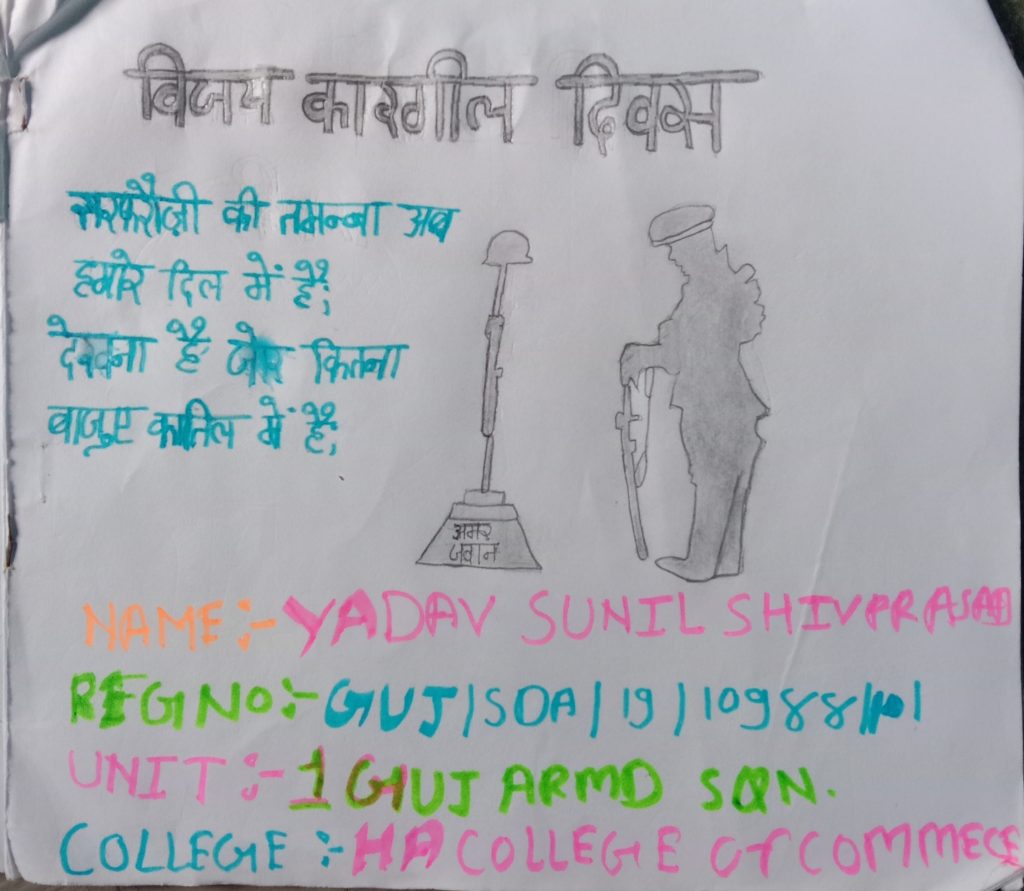 विजय कारगील दिवस
सरफरोज़ी की तमन्ना अब
हमारे दिल में है;
देखना है जोर कितना
बाजुए कातिल में है;
अमर
जवान
NAME:- YADAV SUNIL SHIVPRASAD
REG NO:- GUJ/SDA/19/10988
UNIT:- 1 GUJ ARMD SQN.
COLLEGE:- HA COLLEGE OF COMMECE